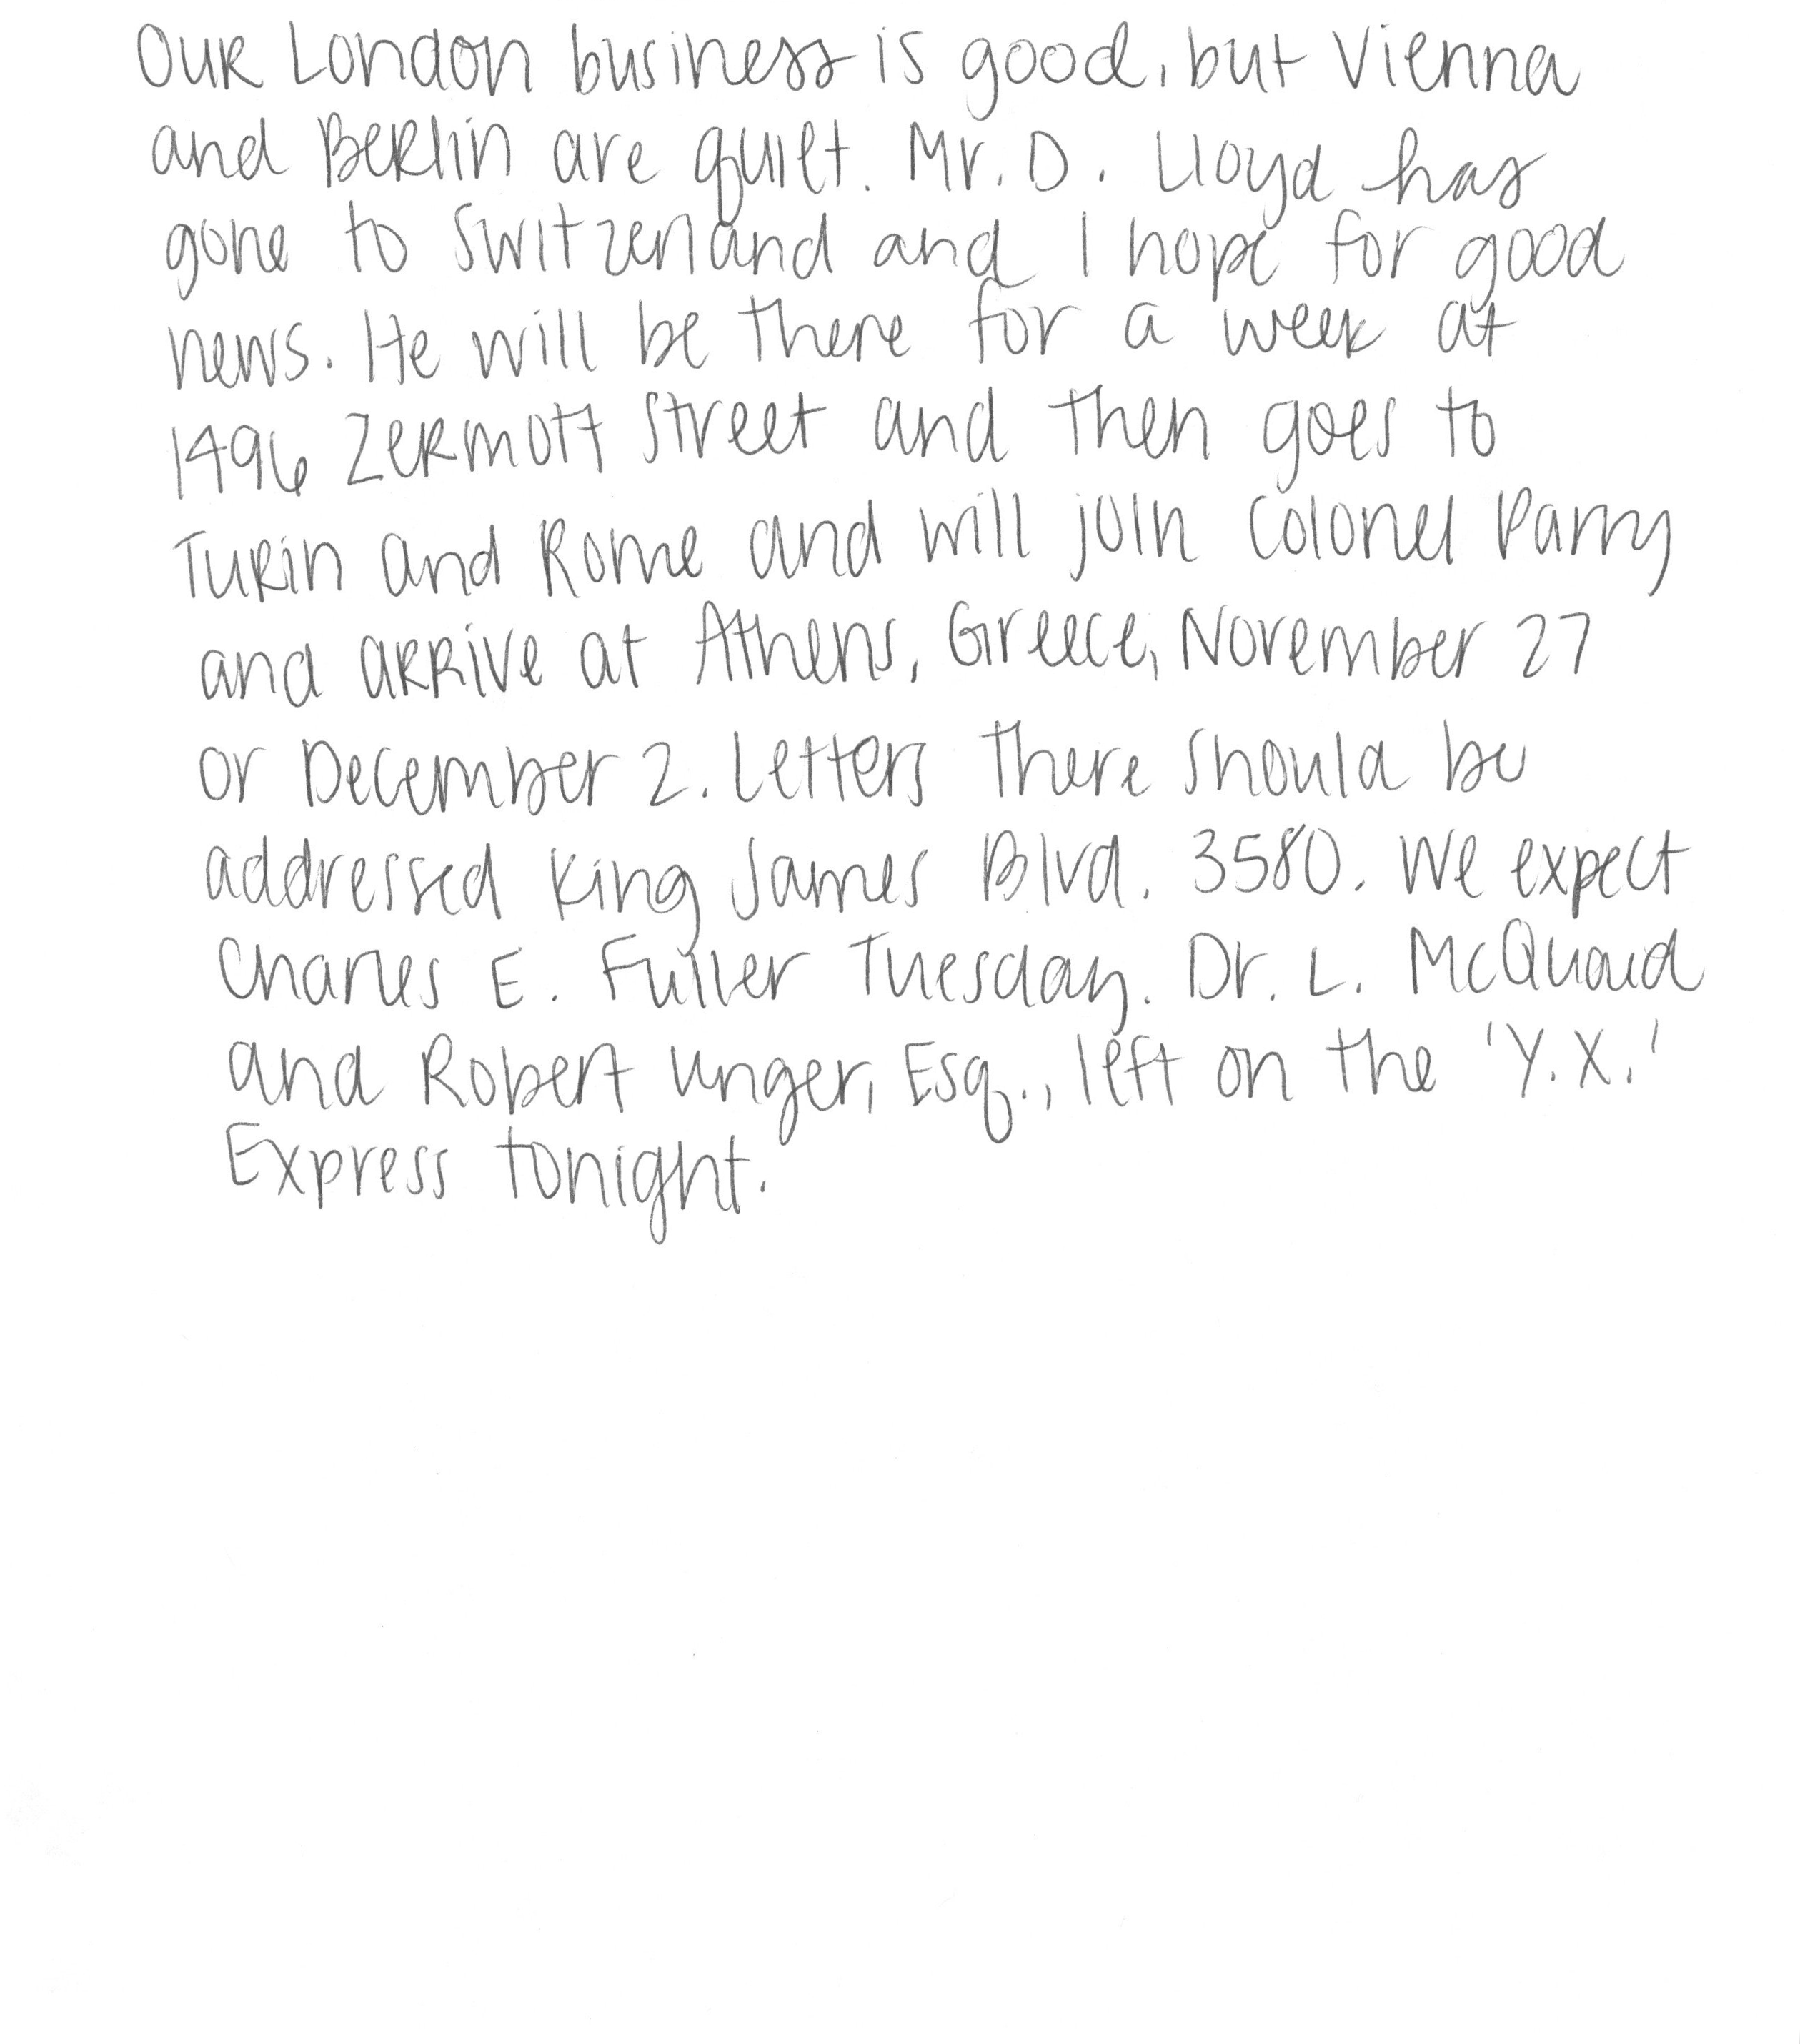 Our London business is good, but Vienna
and Berlin are quiet. Mr. D. Lloyd has
gone to Switzerland and I hope for good
news. He will be there for a week at
1496 Zermott Street and then goes to
Turin and Rome and will join Colonel Parry
and arrive at Athens, Greece, November 27
or December 2. Letters there should be
addressed King James Blvd. 3580. We expect
Charles E. Fuller Tuesday. Dr. L. McQuaid
and Robert Unger, Esq., left on the 'Y.X.'
Express tonight.